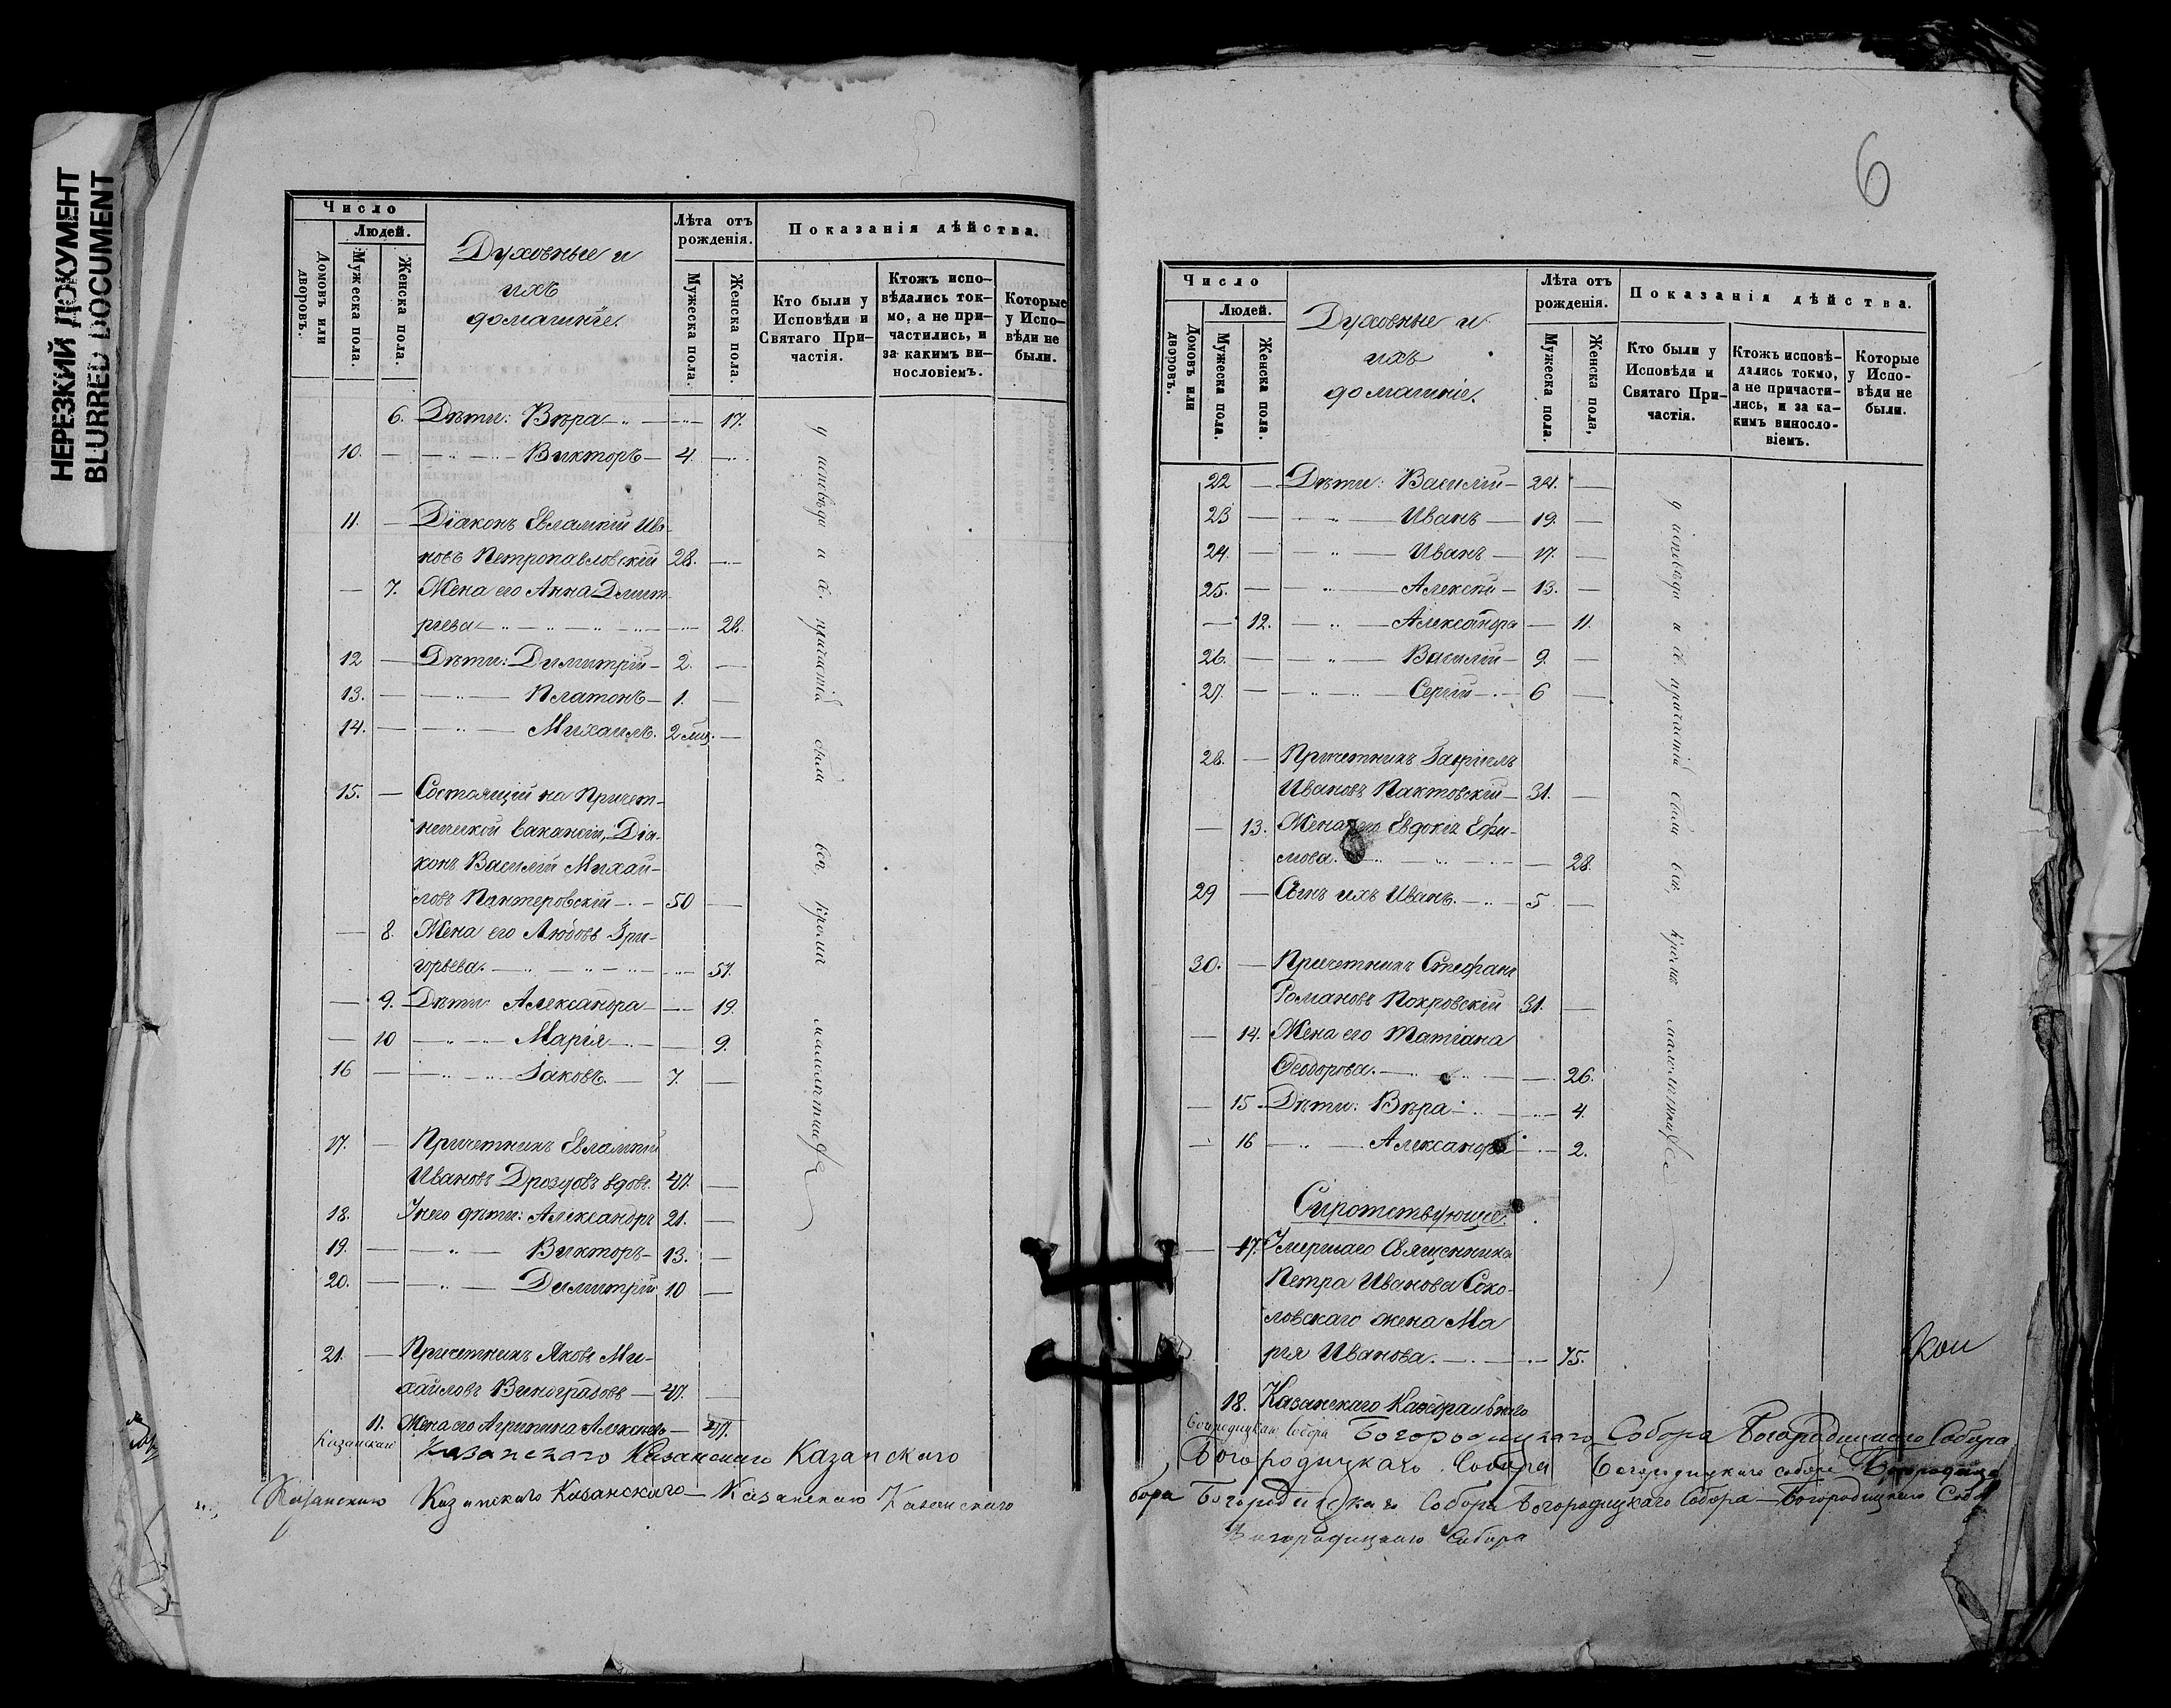 НЕРЕЗКИЙ ДОКУМЕНТ
BLURRED DOCUMENT
Число
Людей.
Домовъ или дворовъ.
Мужеска пола.
Женска пола.
Духовные и
ихъ
домашніе.
Лѣта отъ рожденія.
Мужеска пола.
Женска пола.
Показанія дѣйства.
Кто были у Исповѣди и Святаго Причастія.
Ктожъ исповѣдались токмо, а не причастились, и за какимъ винословіемъ.
Которые у Исповѣди не были.
6. Дѣти: Вѣра 17.
10. Викторъ 4.
11. Діаконъ Евлампій Ива-
новъ Петропавловскій 28.
7. Жена его Анна Димит-
ріева 28.
12 Дѣти: Димитрій 2.
13. Платонъ 1.
14. Михаилъ. 2 мѣс.
15. Состоящій на Причет-
нической вакансіи, Діа-
конъ Василій Михай-
ловъ Пантеровскій 50
8. Жена его Любовь Гри-
горьева. 51.
9. Дѣти Александра 19.
10 Марія 9.
16 Іаковъ. 7.
17. Причетникъ Евлампій
Ивановъ Дроздовъ вдовъ. 47.
18. У него дѣти: Александръ 21.
19. Викторъ 13.
20. Димитрій 10
21. Причетникъ Яковъ Ми-
хайловъ Виноградовъ 47.
11. Жена его Агрипина 47.
у исповѣди и св. причастія были всѣ, кромѣ малолѣтнихъ
Казанскаго Казанскаго Казанскаго
Казанскаго Казанскаго Казанскаго Казанскаго Казанскаго
6
Число
Людей.
Домовъ или дворовъ.
Мужеска пола.
Женска пола.
Духовные и
ихъ
домашніе.
Лѣта отъ рожденія.
Мужеска пола.
Женска пола,
Показанія дѣйства.
Кто были у Исповѣди и Святаго Причастія.
Ктожъ исповѣдались токмо, а не причастились, и за какимъ винословіемъ.
Которые у Исповѣди не были.
22 Дѣти: Василій 24.
23 Иванъ 19.
24. Иванъ 17.
25. Алексѣй 13.
12. Александра 11.
26. Василій 9.
27. Сергій 6
28. Причетникъ Гавріилъ
Ивановъ Пактовскій 31.
13. Жена его Евдокія Ефи-
мова. 28.
29 Сынъ ихъ Иванъ. 5
30. Причетникъ Стефанъ
Романовъ Покровскій 31.
14. Жена его Татіана
Ѳеодорова. 26.
15 Дѣти: Вѣра 4.
16 Александра 2.
Сиротствующіе.
17. Умершаго Священника
Петра Иванова Соко-
ловскаго жена Ма
рія Иванова. 75.
у исповѣди и св. причастія были всѣ, кромѣ малолѣтнихъ
кои
18. Казанскаго Каѳедральнаго
Богородицкаго Собора Богородицкаго Собора Богородицкаго Собора
Богородицкаго Собора Богородицкаго собора
бора Богородицкаго Собора Богородицкаго Собора Богородицкаго Собо
Богородицкаго Собора